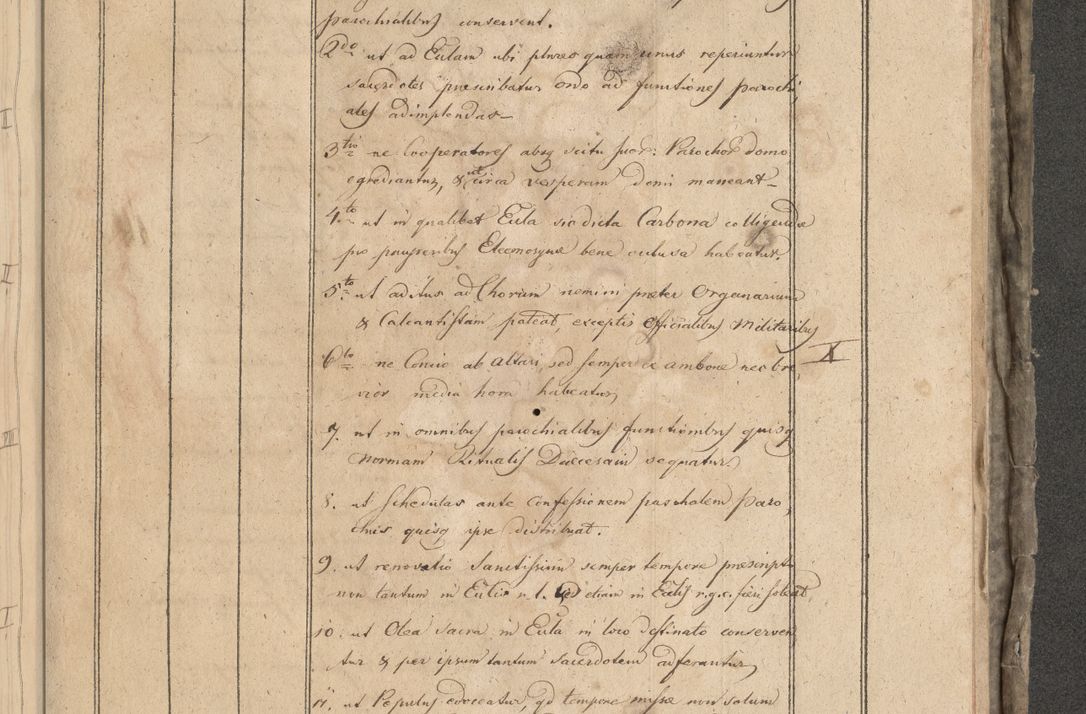 parochialibus conservent.
2do ut ad Eccłam ubi plures quam unus reperiuntur
sacerdotes praescribatur ordo ad functiones parochi,
ales adimplendas_
3tio ne Cooperatores absq scitu suor: Parochor domo
egrediantur, & ut circa vesperam domi maneant_
4to ut in qualibet Eccła sic dicta Carbona colligendae
pro pauperibus Eleemosynae bene occlusa habeatur.
5to ut aditus ad Chorum nemini praeter Organarium
& Calcantistam pateat, exceptis Officialibus Militaribus
6to ne Concio ab altari, sed semper ex ambone nec bre,
vior media hora habeatur,
7. ut in omnibus parochialibus functionibus quisq
Normam Ritualis Dioecesani sequatur.
8. ut schedulas ante confessionem paschalem Paro,
chus quisq ipse distribuat.
9. ut renovatio Sanctissimi semper tempore praescripto
non tantum in Ecclis r. l. sed etiam in Ecclis r.g.c. fieri soleat,
10. ut Olea sacra in Eccła in loco destinato conserven
tur & per ipsum tantum sacerdotem adferantur,
11. ut Populus edoceatur, qd tempore missae non solum
I
II
III
I
X